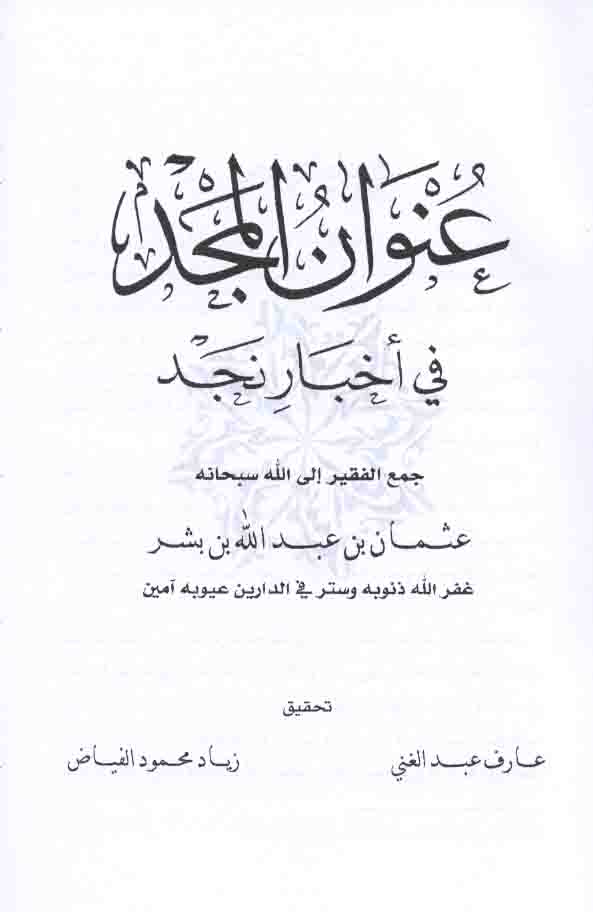 عُنْوَانُ المَجْد
في أخبَارِ نَجَد
جمع الفقير إلى الله سبحانه
عثمان بن عبد الله بن بشر
غفر الله ذنوبه وستر في الدارين عيوبه آمين
تحقيق
عارف عبد الغني زياد محمود الفياض